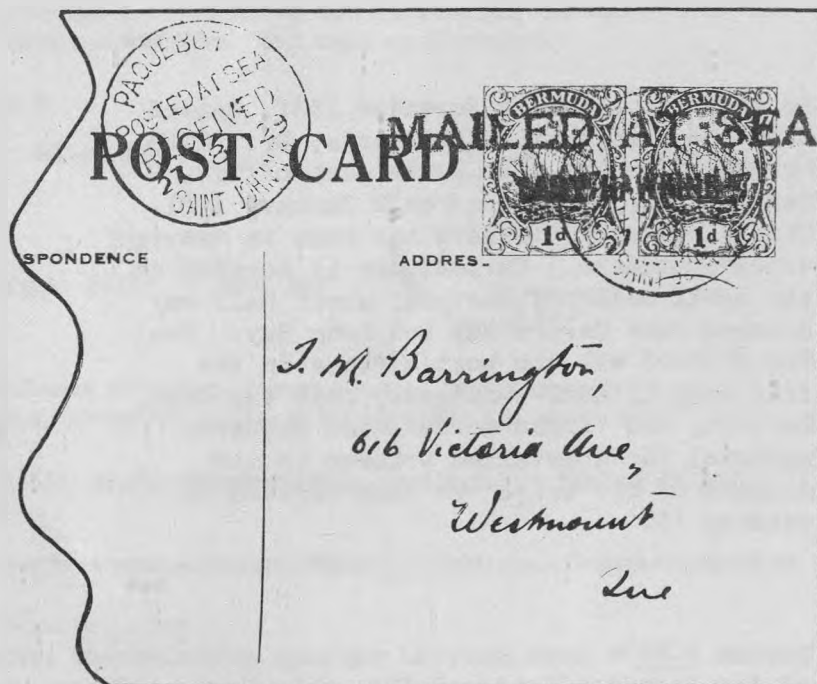 PAQUEBOT
POSTED AT SEA
RECEIVED
SAINT JOHN
POST CARD
MAILED AT SEA
BERMUDA
BERMUDA
1d
1d
SPONDENCE
ADDRES
T. M. Barrington,
616 Victoria Ave,
Westmount
Que